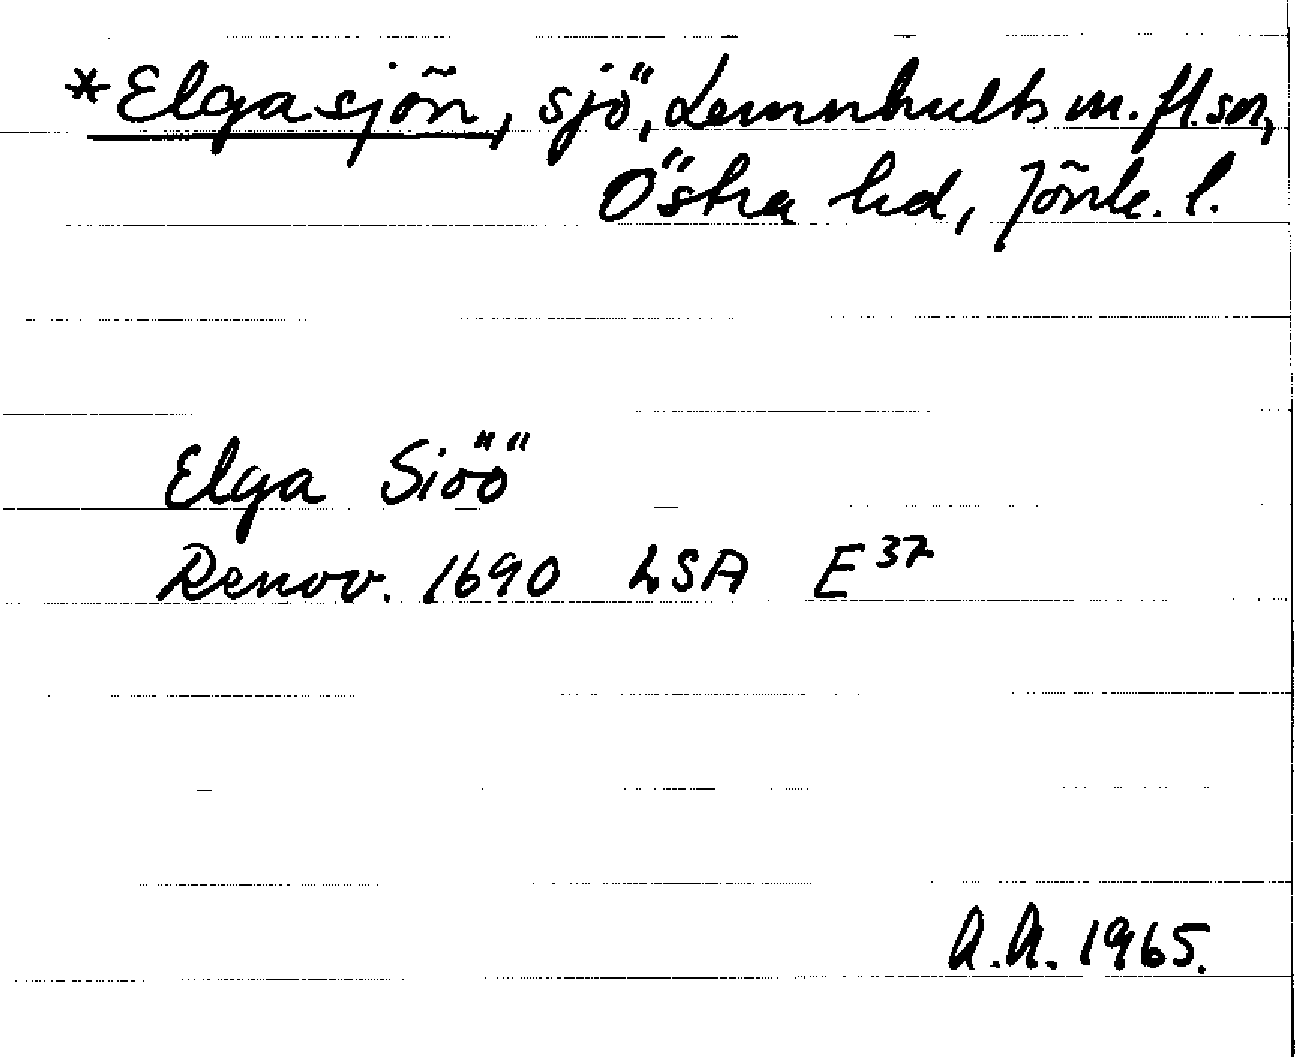 *Elgasjön, sjö, Lemnhults m. fl. snr,
Östra hd, Jönk. l.
Elga Siöö
Renov. 1690 LSA E 37
A.A. 1965.